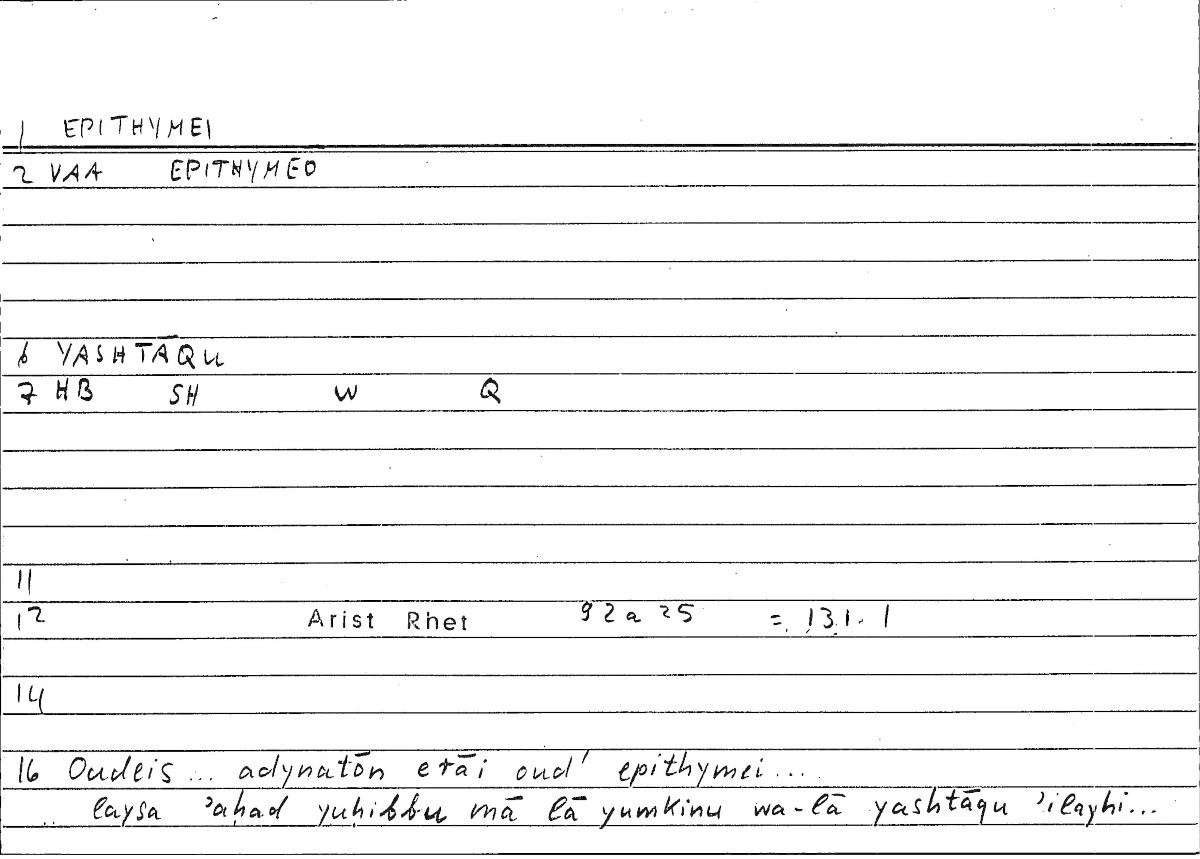 1 EPITHYMEI
2 VAA EPITHYMEO
6 YASHTĀQU
7 HB SH W Q
11
12 Arist Rhet 92a25 = 131.1
14
16 Oudeis ... adynatōn erāi oud' epithymei ...
.. laysa 'aḥad yuḥibbu mā lā yumkinu wa-lā yashtāqu 'ilayhi...